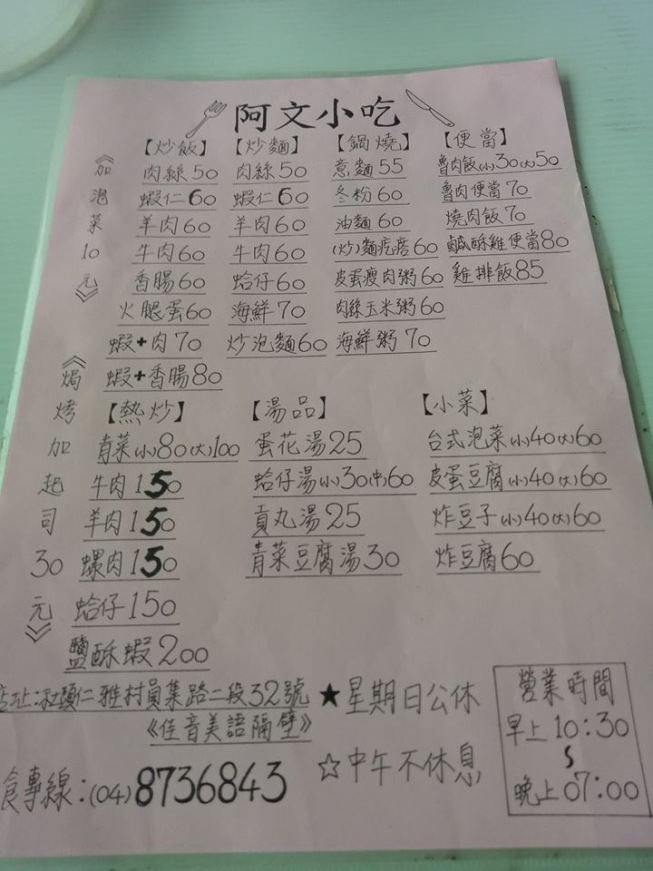 阿文小吃
【炒飯】 【炒麵】 【鍋燒】 【便當】
肉絲50 肉絲50 意麵55 魯肉飯(小)30(大)50
蝦仁60 蝦仁60 冬粉60 魯肉便當70
羊肉60 羊肉60 油麵60 燒肉飯70
牛肉60 牛肉60 (炒)麵疙瘩60 鹹酥雞便當80
香腸60 蛤仔60 皮蛋瘦肉粥60 雞排飯85
火腿蛋60 海鮮70 肉絲玉米粥60
蝦+肉70 炒泡麵60 海鮮粥70
蝦+香腸80
《加泡菜10元》
《焗烤加起司30元》
【熱炒】 【湯品】 【小菜】
青菜(小)80(大)100 蛋花湯25 台式泡菜(小)40(大)60
牛肉150 蛤仔湯(小)30(中)60 皮蛋豆腐(小)40(大)60
羊肉150 貢丸湯25 炸豆子(小)40(大)60
螺肉150 青菜豆腐湯30 炸豆腐60
蛤仔150
鹽酥蝦200
店址:社頭仁雅村員集路二段32號
《佳音美語隔壁》
食專線:(04)8736843
★星期日公休
☆中午不休息
營業時間
早上10:30
~
晚上07:00